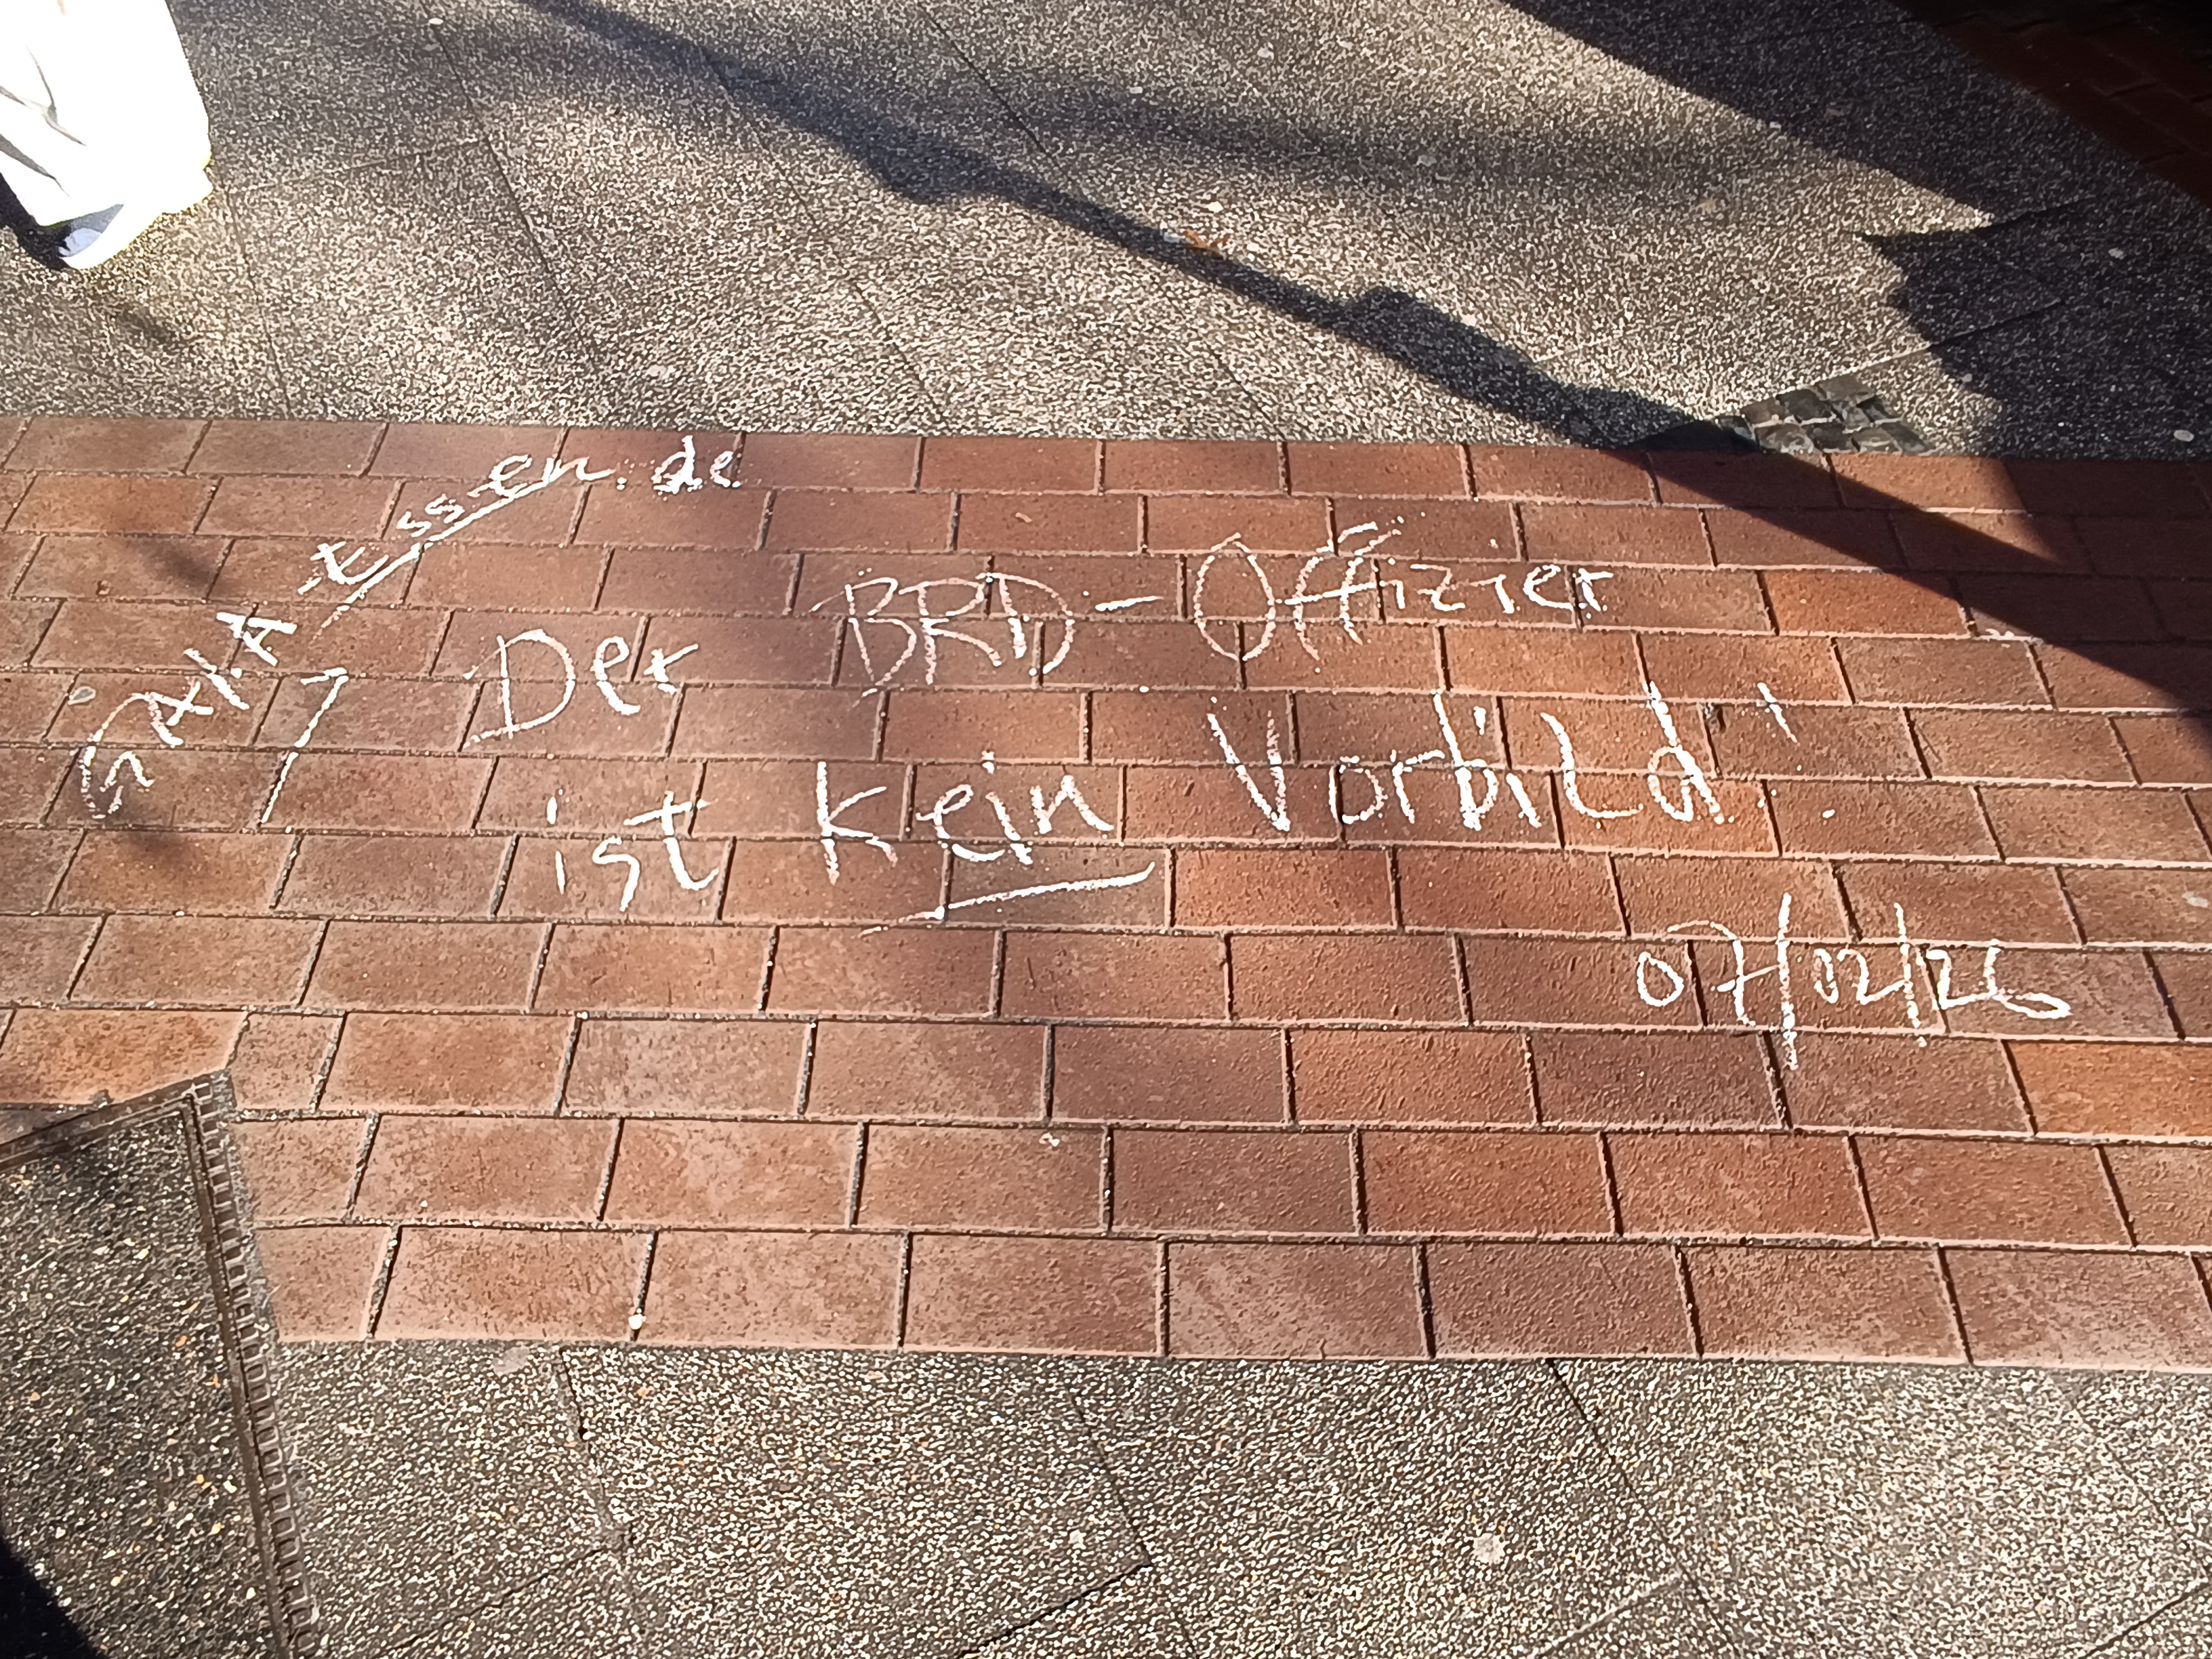 -essen.de
Der BRD-Offizier
ist kein Vorbild!
07/02/26